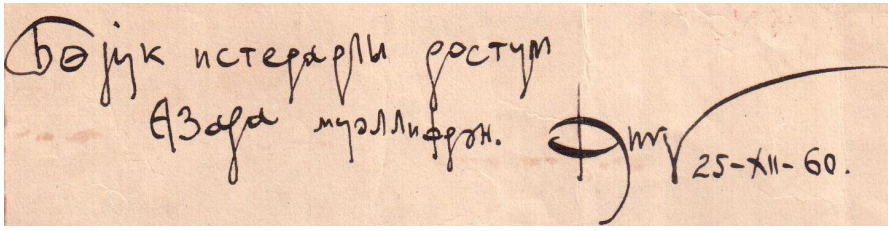 Бөјук истедадлы достум
Азада муәллифдән.
25-XII-60.